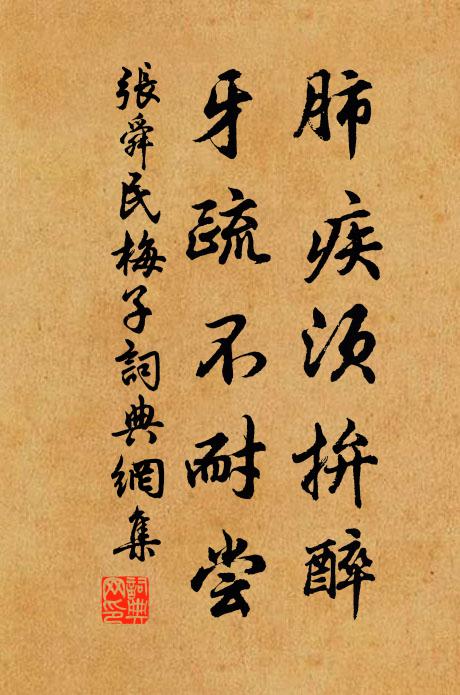 肺疾须拚醉
牙疏不耐尝
張舜民梅子詞典網集
詞典网印